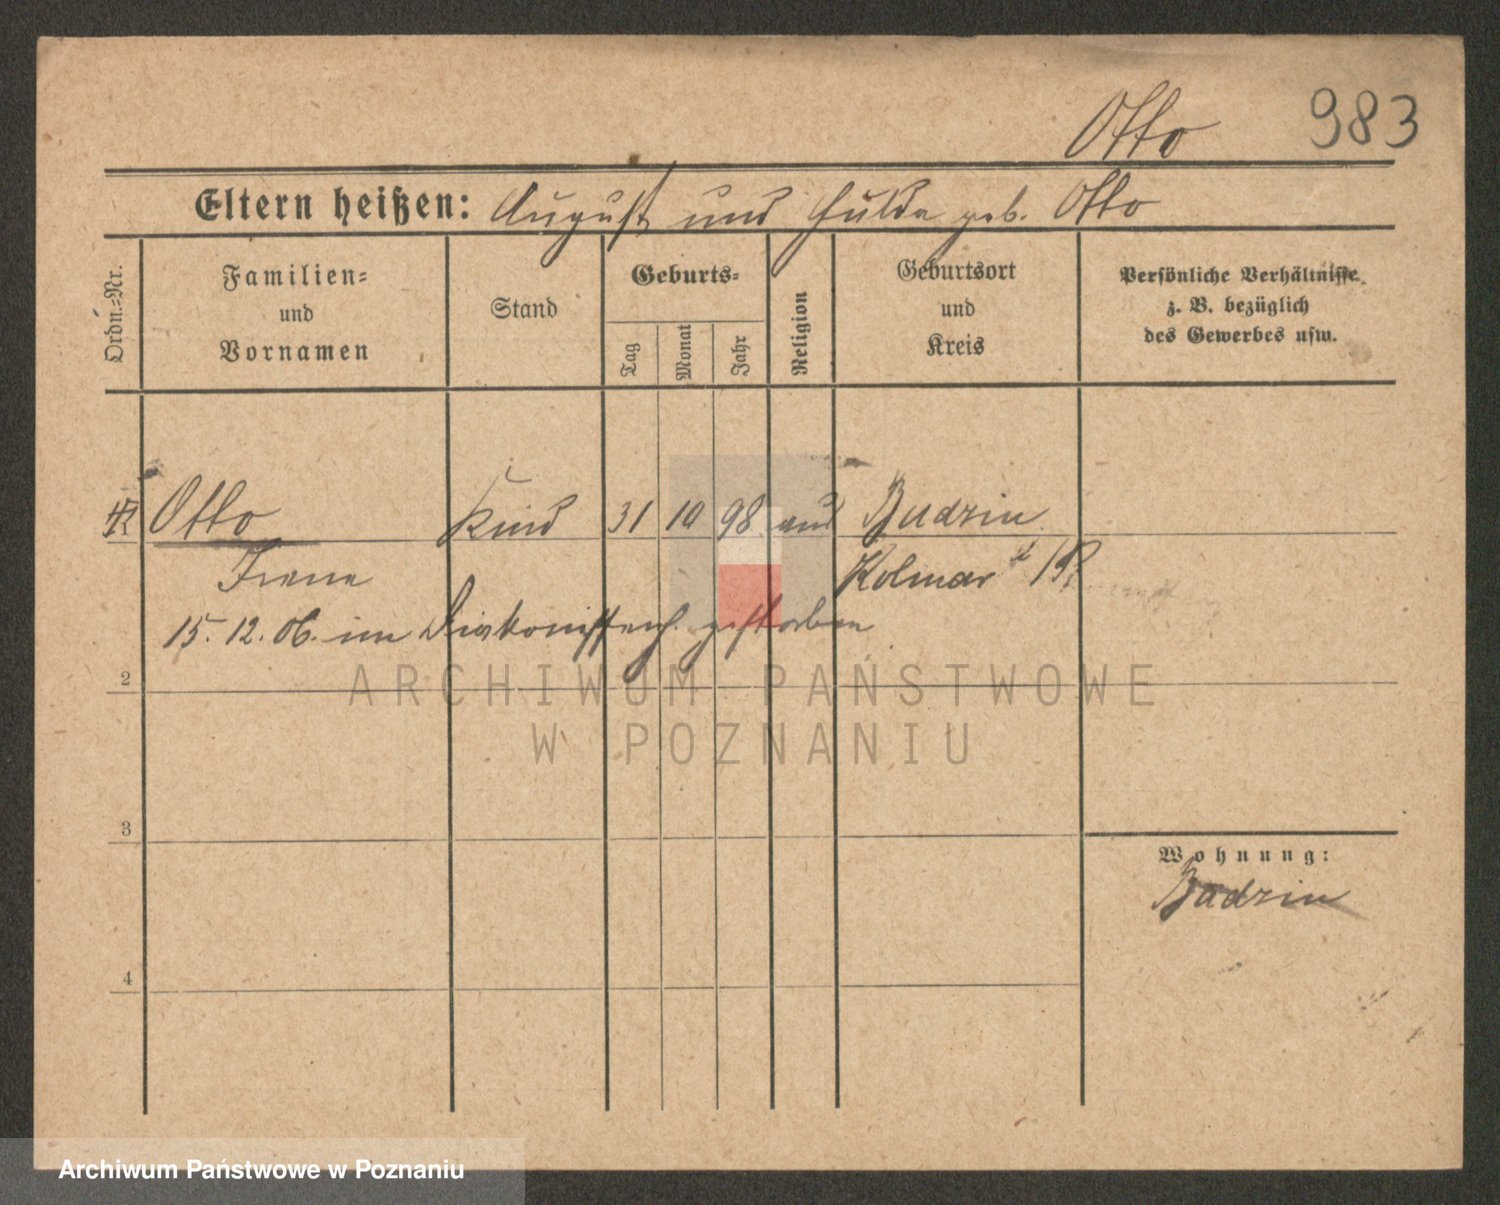 Otto 983
Eltern heißen: August und Hulda geb. Otto
Ordn.=Nr.
Familien=
und
Vornamen
Stand
Geburts=
Tag
Monat
Jahr
Religion
Geburtsort
und
Kreis
Persönliche Verhältnisse
z. B. bezüglich
des Gewerbes usw.
Otto Kind 31 10 98 Budzin
Irene Kolmar
15. 12. 06. im Diakonissenh. gestorben
2
ARCHIWUM PAŃSTWOWE
W POZNANIU
3
Wohnung:
Budzin
4
Archiwum Państwowe w Poznaniu